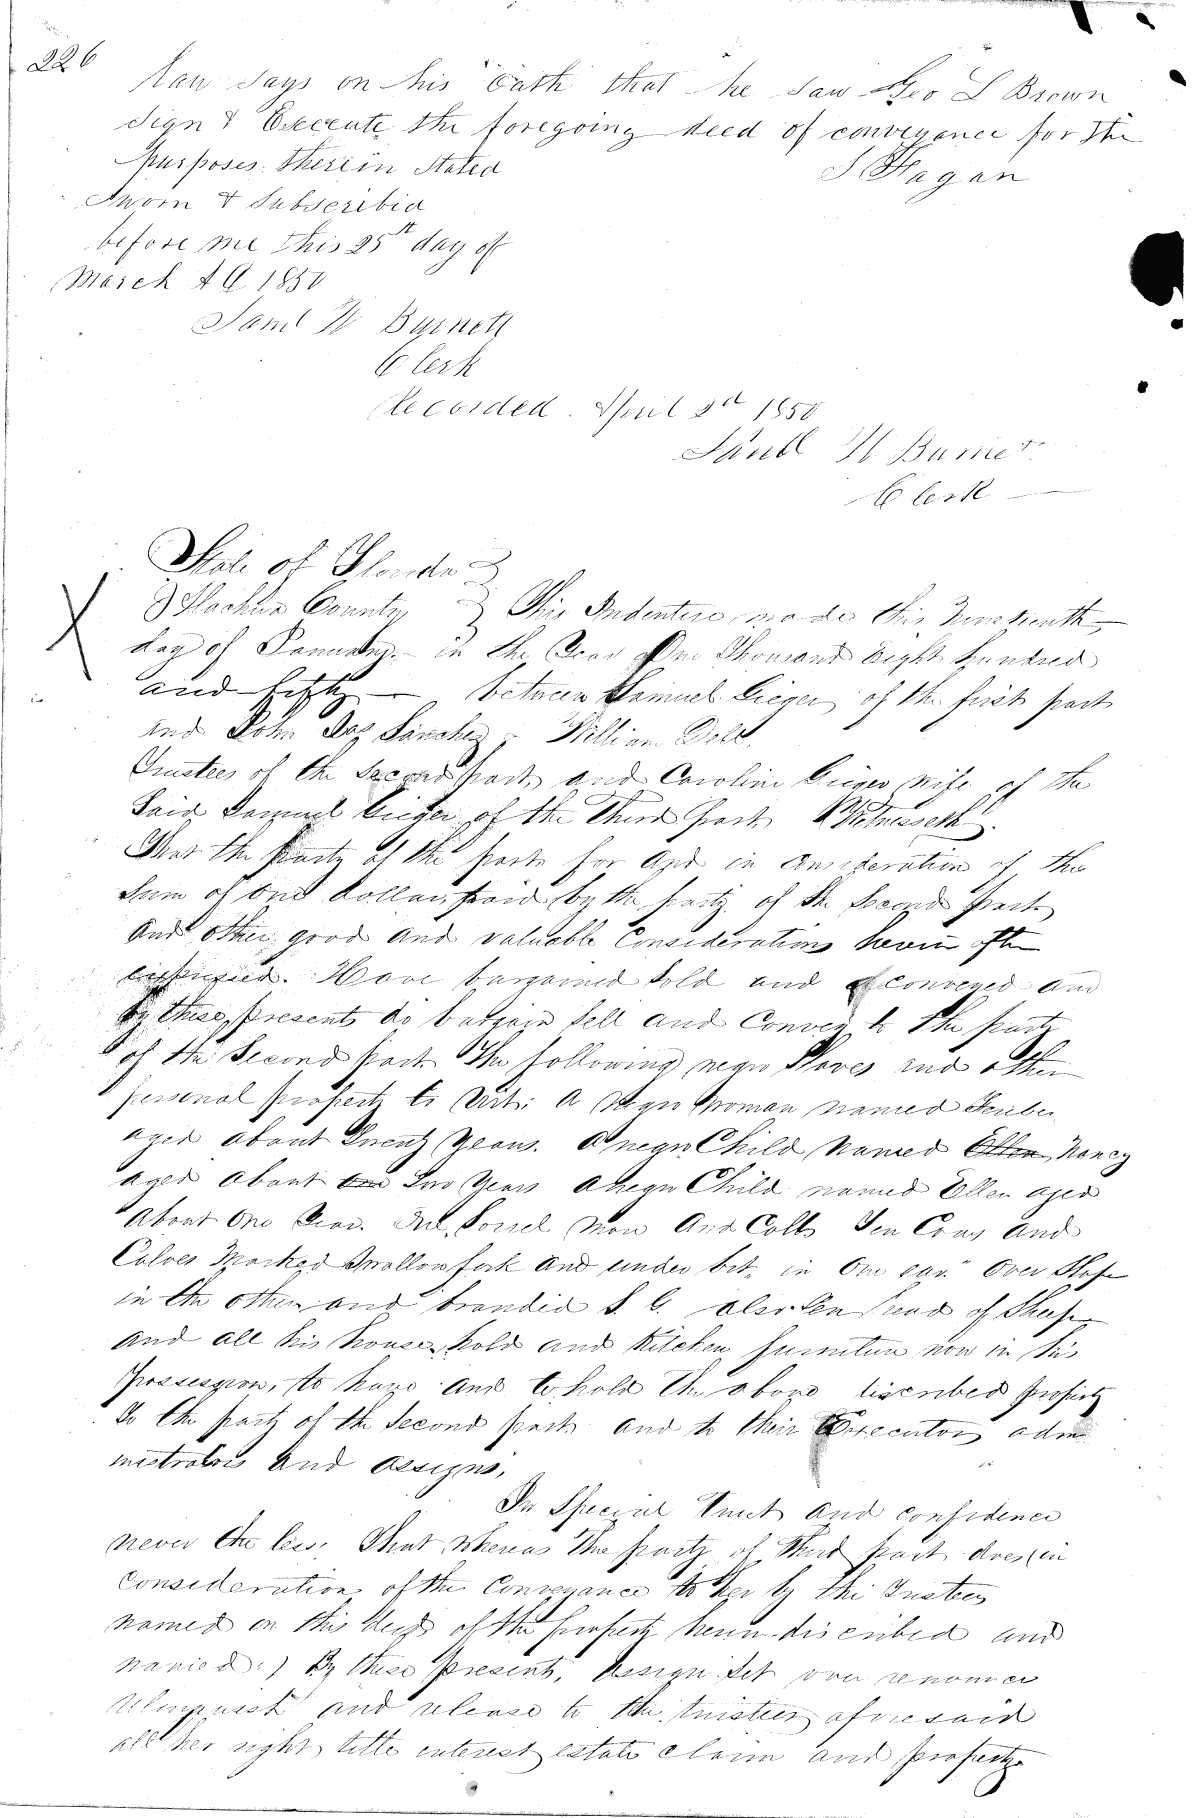 226
law says on his oath that he saw Geo L Brown
sign & Execute the foregoing deed of conveyance for the
purposes therein stated S Hagan
Sworn & Subscribed
before me this 25th day of
March A D 1850
Saml W Burnett
Clerk
Recorded April 2d 1850
Saml W Burnet
Clerk
State of Florida
Alachua County This Indenture made this Nineteenth
day of January in the Year One Thousand Eight hundred
and fifty between Samuel Gieger of the first part
and John Sanchez William Dell
Trustees of the Second part and Caroline Gieger wife of the
Said Samuel Gieger of the Third part Witnesseth
That the party of the part for and in Consideration of the
Sum of One dollar paid by the party of the Second part
And other good and valuable Considerations herein after
expressed. Have bargained Sold and conveyed and
by these presents do bargain Sell and Convey to the party
of the Second part The following negro Slaves and other
personal property to Wit: A negro woman named
aged about Twenty Years. A negro Child Named Ellen Nancy
aged about one Two Years A negro Child named Ellen aged
About One Year. One Sorrel Mare And Colt Ten Cows and
Calves Marked Swallowfork and under bit in One ear Over Slope
in the other and branded S G also Ten head of Sheep
and all his household and Kitchen furniture now in his
Possession, to have and to hold the above discribed property
to the party of the Second part and to their Executors adm
inistrators and assigns,
In Special Trust and confidence
never the less, That whereas The party of Third part does (in
Consideration of the Conveyance to her by the Trustees
named on this deed of the property herein discribed and
named) By these presents, Assign Set over renounce
relinquish and release to the trustees aforesaid
all her right title interest estate claim and property